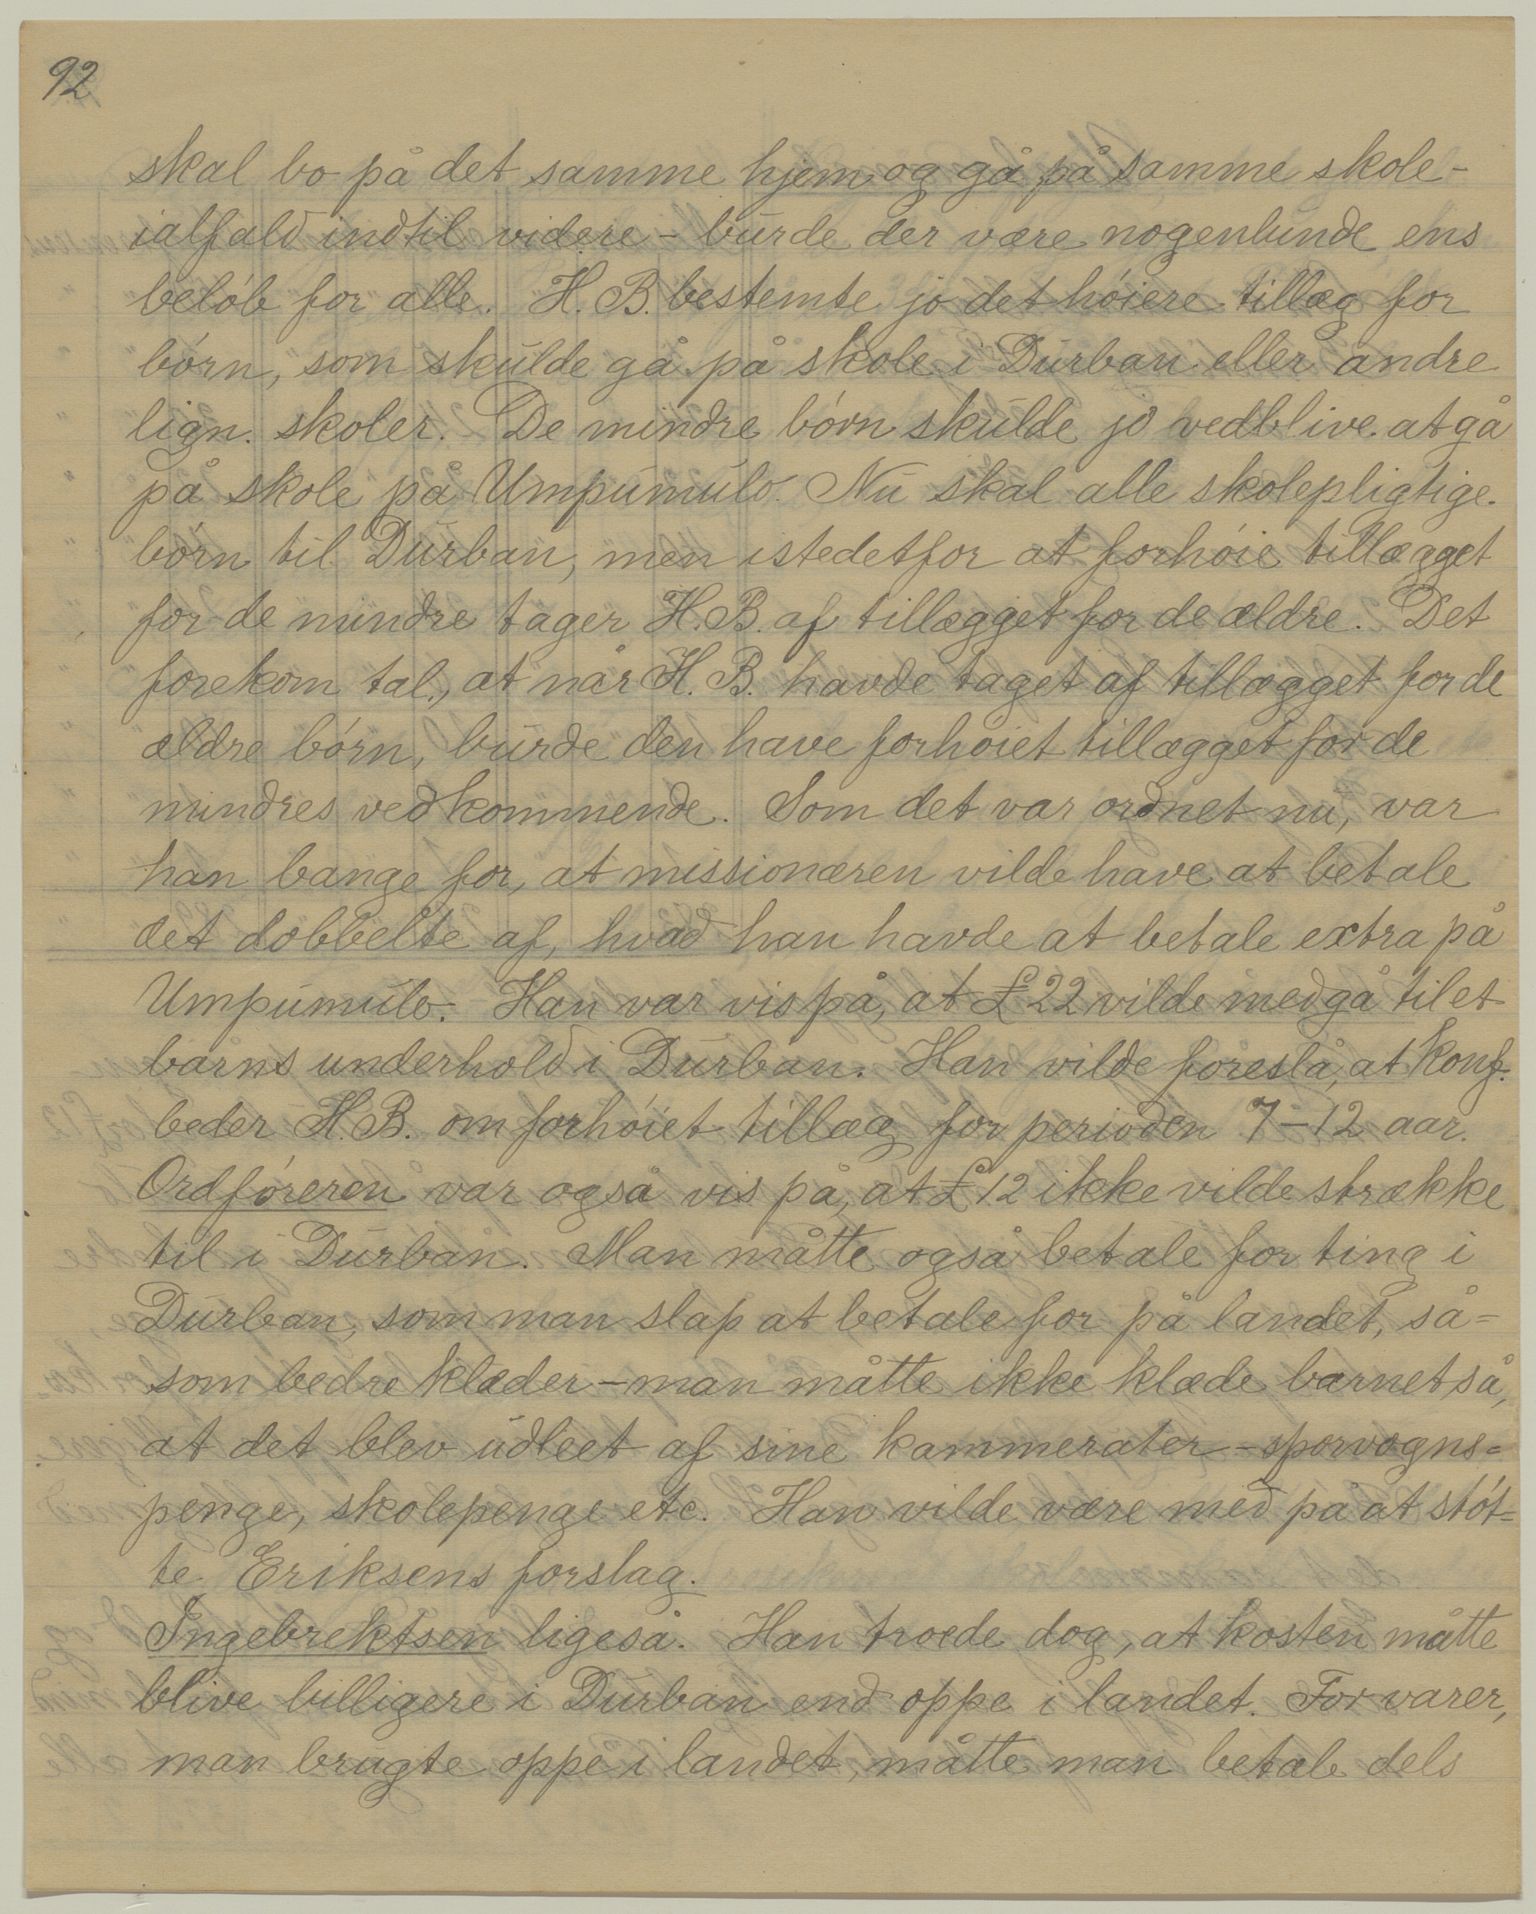 92
skal bo på det samme hjem og gå på samme skole -
ialfald indtil videre - burde der være nogenlunde ens
beløb for alle. H. B. bestemte jo det høiere tillæg for
børn, som skulde gå på skole i Durban eller andre
lign. skoler. De mindre børn skulde jo vedblive at gå
på skole på Umpumulo. Nu skal alle skolepligtige
børn til Durban, men istedetfor at forhøie tillægget
for de mindre tager H. B. af tillægget for de ældre. Det
forekom tal., at når H. B. havde taget af tillægget for de
ældre børn, burde den have forhøiet tillægget for de
mindres vedkommende. Som det var ordnet nu, var
han bange for, at missionæren vilde have at betale
det dobbelte af, hvad han havde at betale extra på
Umpumulo. Han var vis på, at £ 22 vilde medgå til et
barns underhold i Durban. Han vilde foreslå, at Konf.
beder H. B. om forhøiet tillæg for perioden 7-12 aar.
Ordføreren var også vis på, at £ 12 ikke vilde strække
til i Durban. Man måtte også betale for ting i
Durban, som man slap at betale for på landet, så=
som bedre klæder - man måtte ikke klæde barnet så,
at det blev udleet af sine kammerater - sporvogns=
penge, skolepenge etc. Han vilde være med på at støt=
te Eriksens forslag.
Ingebrektsen ligeså. Han troede dog, at kosten måtte
blive billigere i Durban end oppe i landet. For varer,
man brugte oppe i landet, måtte man betale dels